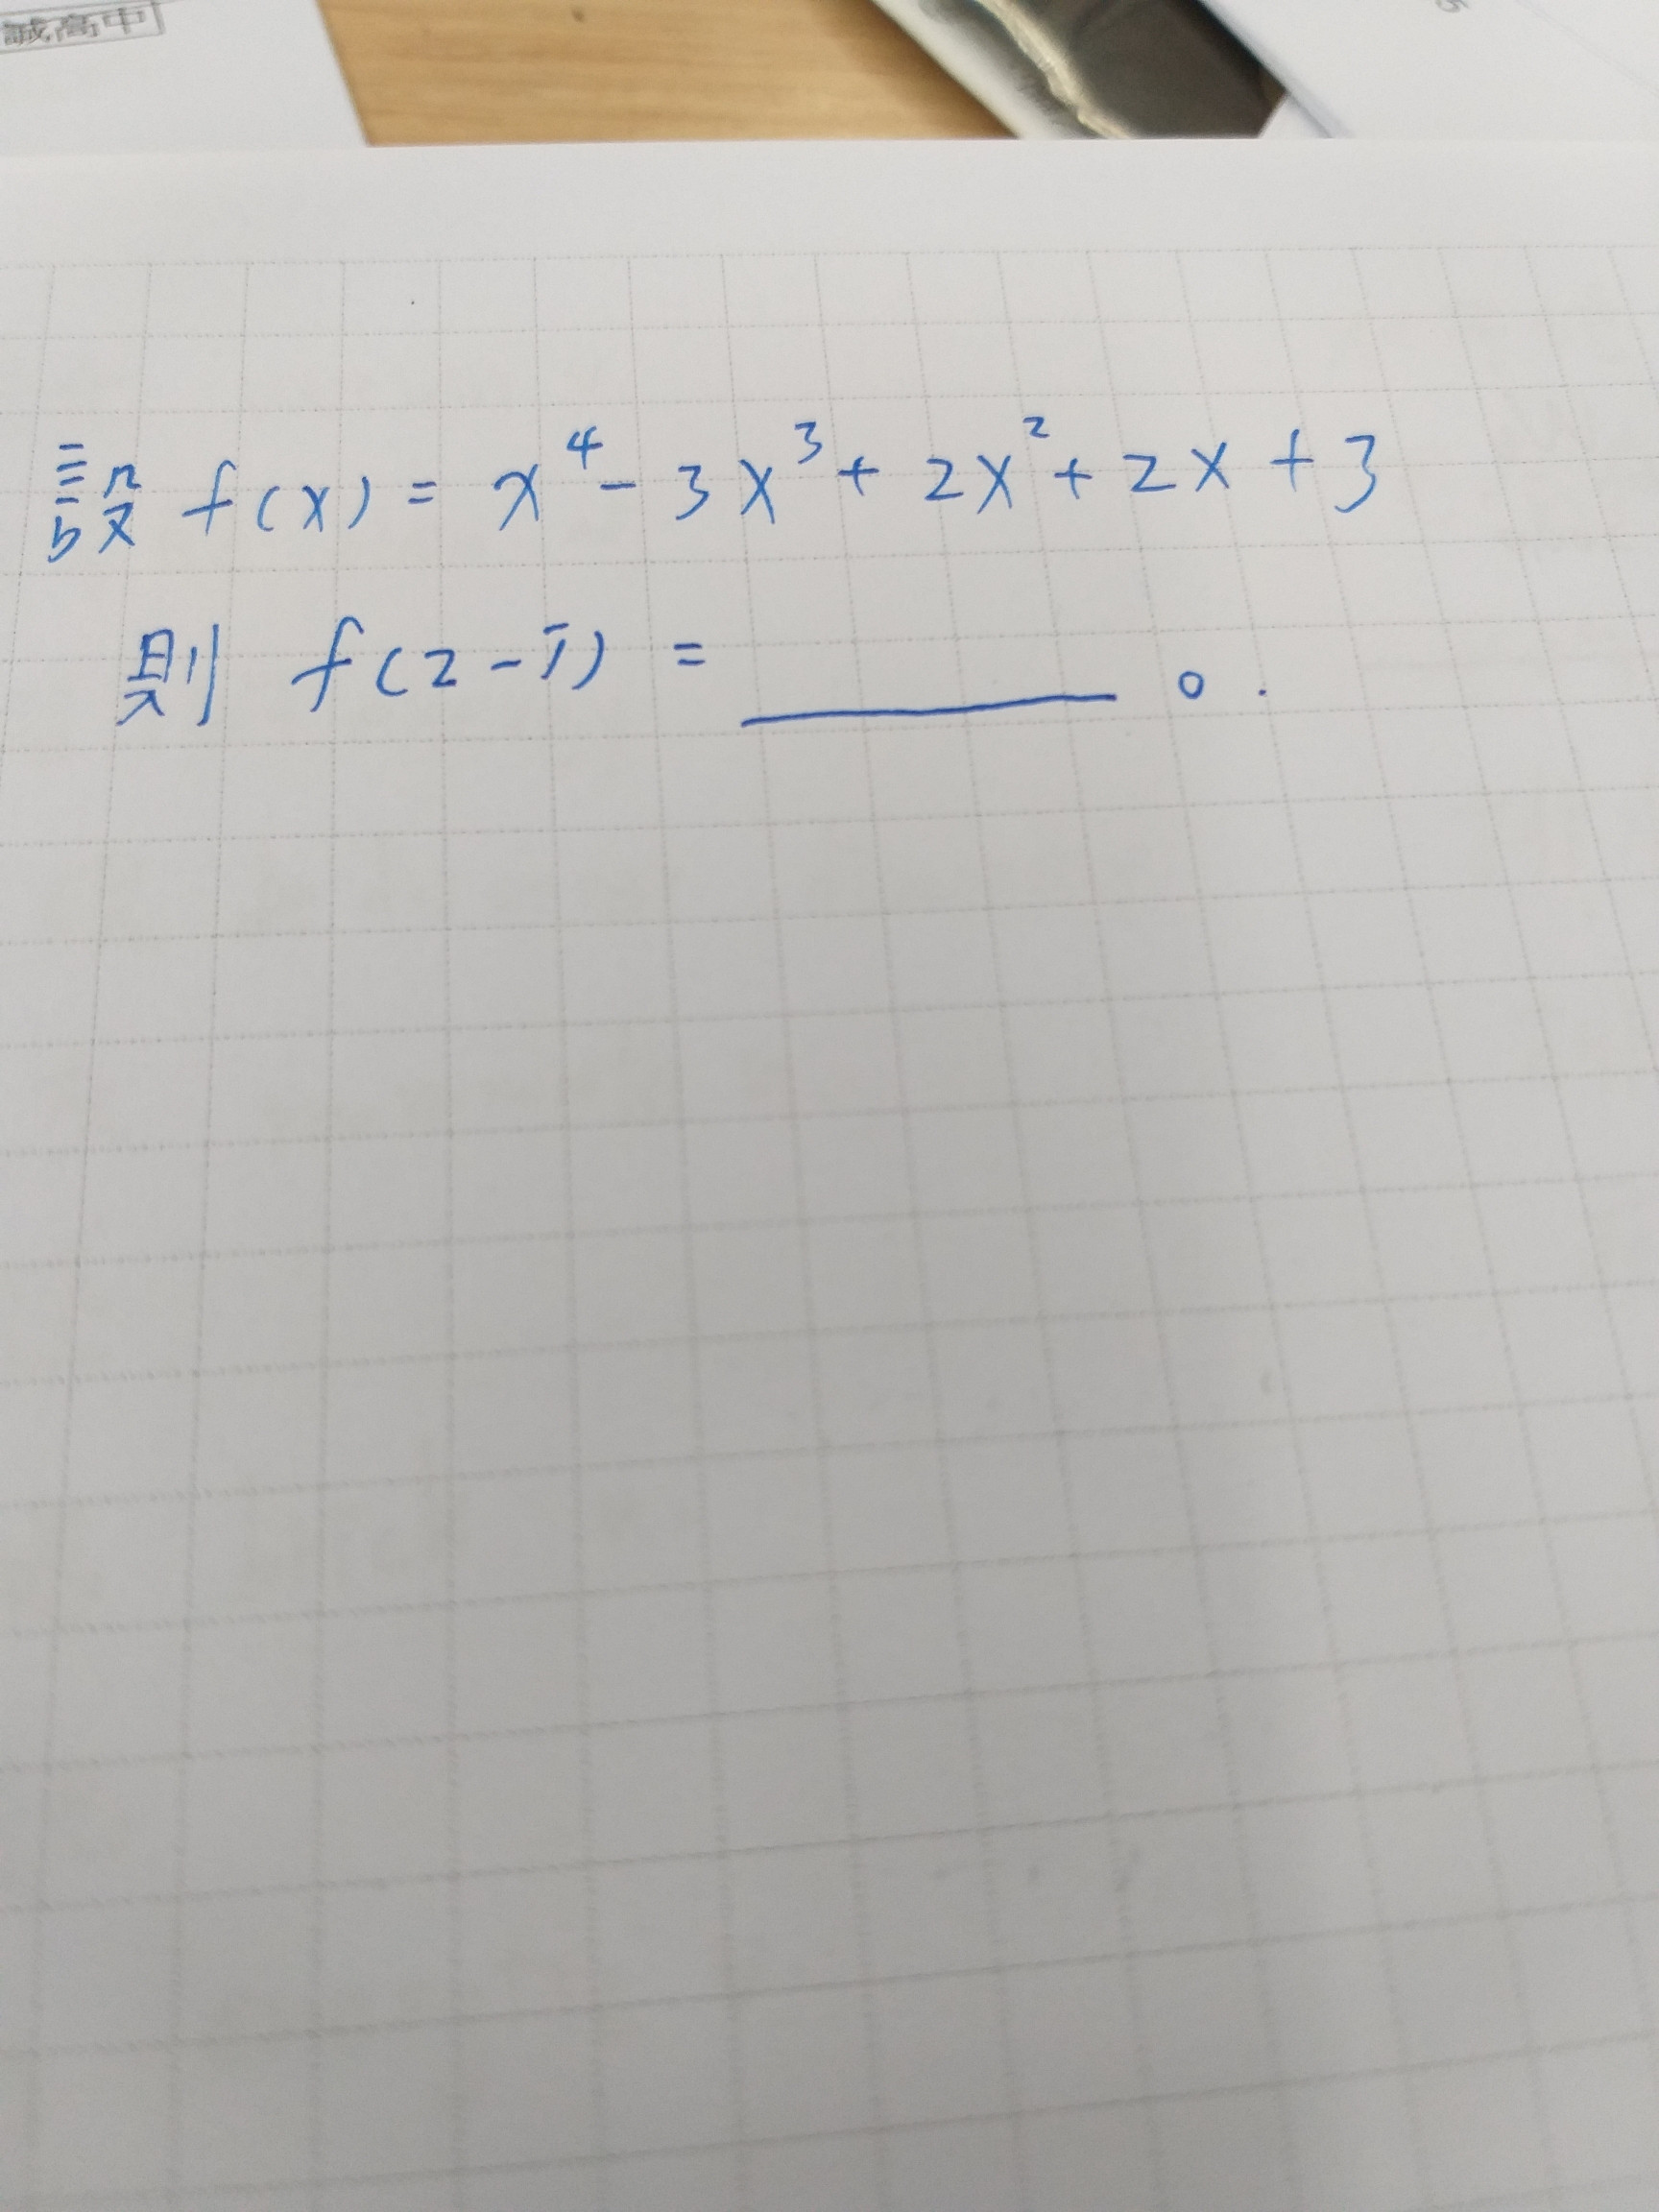 誠高中
設 f(x) = x⁴ - 3x³ + 2x² + 2x + 3
則 f(2-i) = ______ 。.